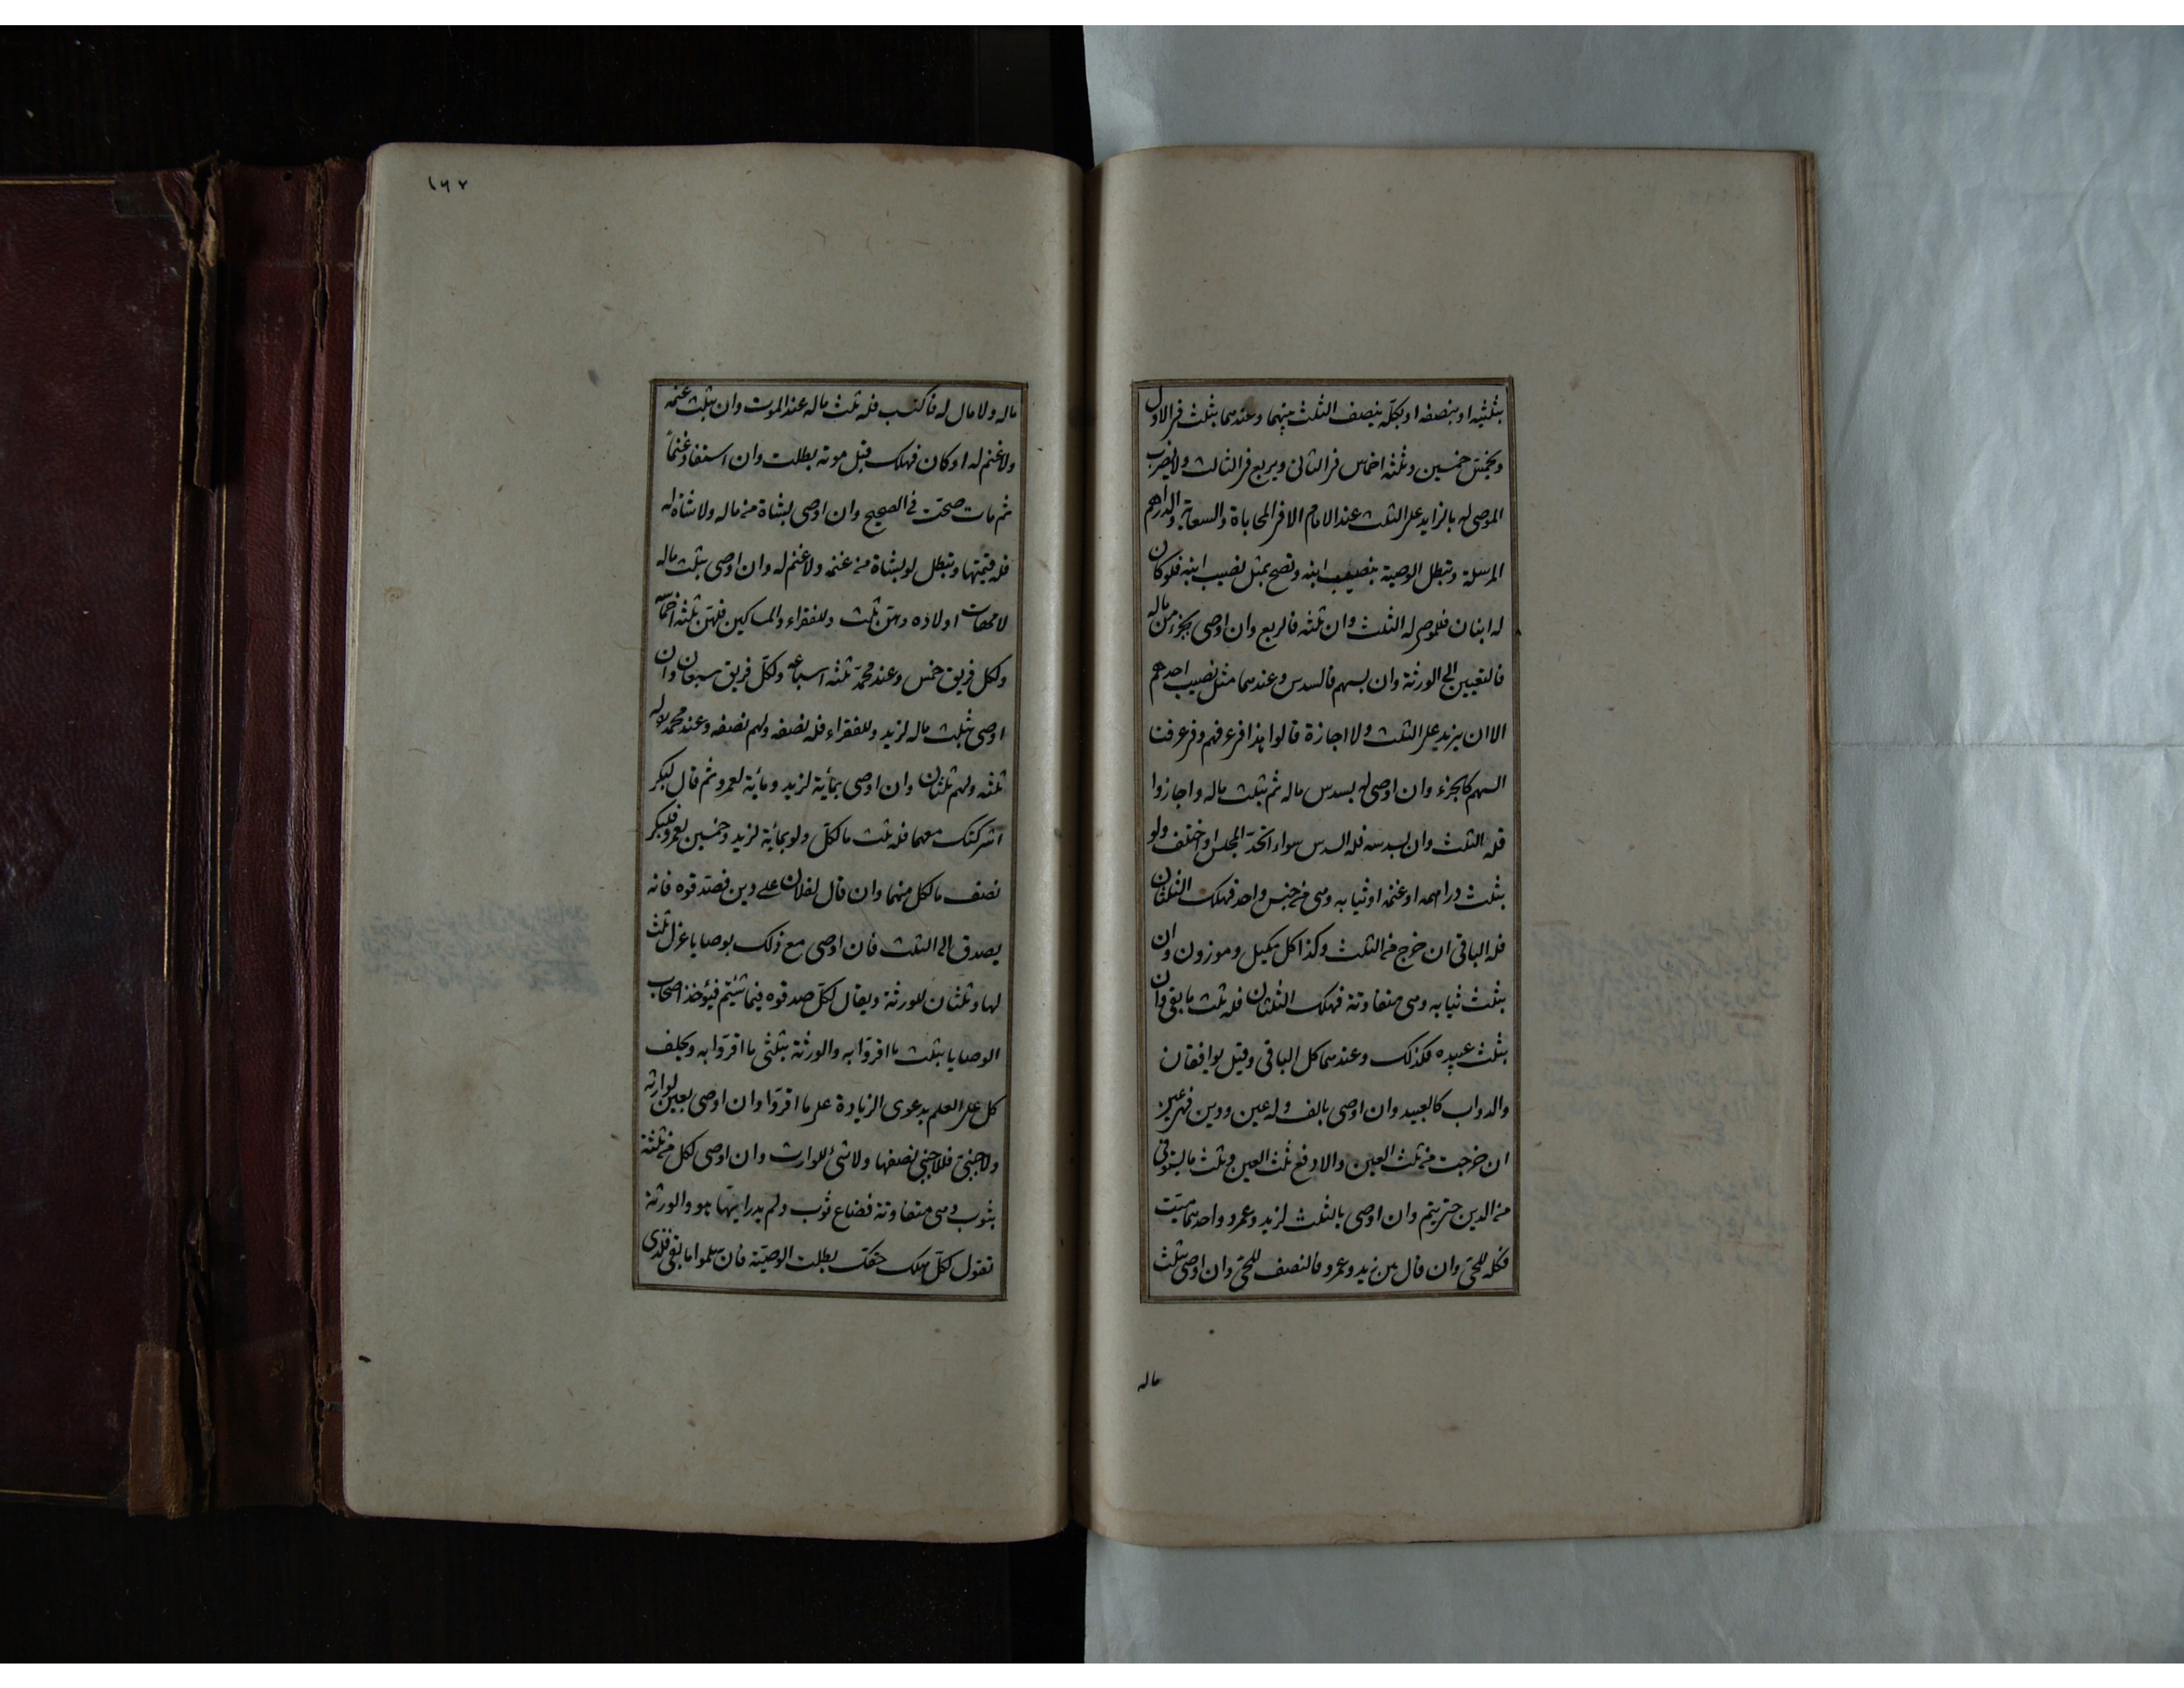 بثلثيه او بنصفه او بكلّه ينصف الثلث بينهما وعندهما يثلث فى الاول
وبخمس خمسين وثلثه اخماس فى الثانى ويربع فى الثالث ولا يضرب
الموصى له بالزايد على الثلث عند الامام الا فى المحاباة والسعاية والدراهم
المرسلة وتبطل الوصية بنصيب ابنه وتصح بمثل نصيب ابنه فلو كان
له ابنان فللموصى له الثلث وان ثلثه فالربع وان اوصى بجزء من ماله
فالتعيين الى الورثة وان بسهم فالسدس وعندهما مثل نصيب احدهم
الا ان يزيد على الثلث ولا اجازة قالوا هذا فى عرفهم وفى عرفنا
السهم كالجزء وان اوصى له بسدس ماله ثم بثلث ماله واجازوا
فله الثلث وان بسدسه فله السدس سواء اتحد المجلس او اختلف ولو
بثلث دراهمه او غنمه او ثيابه وهى من جنس واحد فهلك الثلثان
فله الباقى ان خرج من الثلث وكذا كل مكيل وموزون وان
بثلث ثيابه وهى متفاوتة فهلك الثلثان فله ثلث ما بقى وان
بثلث عبيده فكذلك وعندهما كل الباقى وقيل يوافقان
والدواب كالعبيد وان اوصى بالف وله عين ودين فهى عين
ان خرجت من ثلث العين والا دفع ثلث العين وثلث ما يستوفى
من الدين حتى يتم وان اوصى بالثلث لزيد وعمرو واحدهما ميت
فكله للحىّ وان قال بين زيد وعمرو فالنصف للحىّ وان اوصى بثلث
ماله
١٦٧
ماله ولا مال له فاكتسب فله ثلث ماله عند الموت وان بثلث غنمه
ولا غنم له او كان فهلك قبل موته بطلت وان استفاد غنماً
ثم مات صحت فى الصحيح وان اوصى بشاة من ماله ولا شاة له
فله قيمتها وتبطل لو بشاة من غنمه ولا غنم له وان اوصى بثلث ماله
لامهات اولاده وهنّ ثلث وللفقراء والمساكين فلهنّ ثلثه اخماسه
ولكل فريق خمس وعند محمد ثلثه اسباعه ولكل فريق سبعان وان
اوصى بثلث ماله لزيد وللفقراء فله نصفه ولهم نصفه وعند محمد له
ثلثه ولهم ثلثان وان اوصى بمائة لزيد ومائة لعمرو ثم قال لبكر
اشركتك معهما فله ثلث ما لكلّ ولو بمائة لزيد وخمسين لعمرو فلبكر
نصف ما لكل منهما وان قال لفلان على دين فصدقوه فانه
يصدق الى الثلث فان اوصى مع ذلك بوصايا عزل ثلث
لها وثلثان للورثة ويقال لكلّ صدقوه فيما شئتم فيؤخذ اصحاب
الوصايا بثلث ما اقروا به والورثة بثلثى ما اقروا به ويحلف
كل على العلم بدعوى الزيادة على ما اقروا وان اوصى بعين لوارثه
ولاجنبىّ فللاجنبى نصفها ولا شئ للوارث وان اوصى لكل من ثلثة
بثوب وهى متفاوتة فضاع ثوب ولم يدر ايّها هو والورثة
تقول لكلّ هلك حقك بطلت الوصيّة فان سلموا ما بقى فلذى